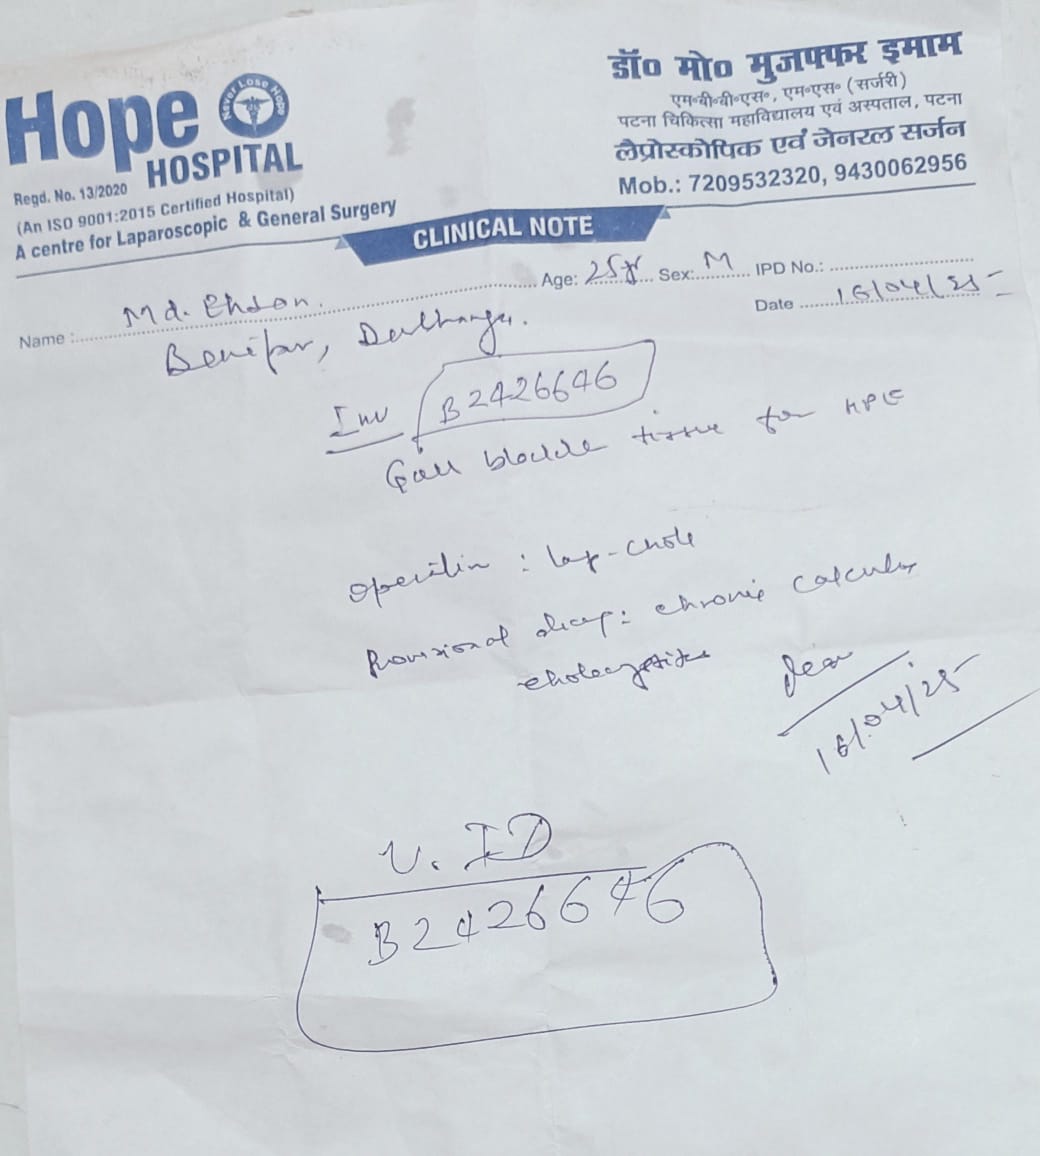 Hope
HOSPITAL
Never Lose Hope
Regd. No. 13/2020
(An ISO 9001:2015 Certified Hospital)
A centre for Laparoscopic & General Surgery
डॉ० मो० मुजफ्फर इमाम
एम०बी०बी०एस०, एम०एस० (सर्जरी)
पटना चिकित्सा महाविद्यालय एवं अस्पताल, पटना
लैप्रोस्कोपिक एवं जेनरल सर्जन
Mob.: 7209532320, 9430062956
CLINICAL NOTE
Name : Md. Ehsan. Age: 25 Sex: M IPD No.:
Date 16/04/25
Inv B2426646
Gall bladde tissue for HPE
Operatin : lap-chole
Provisional : chronic calculus
cholecystitis
16/04/25
U. ID
B2426646